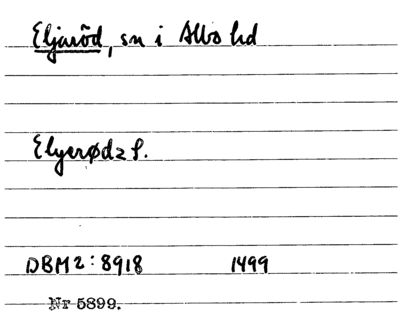 Eljaröd, sn i Albo hd
Elyerødz S.
DBM2:8918 1499
Nr 5899.